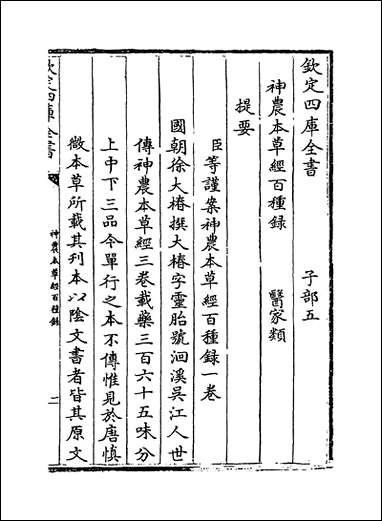 欽定四庫全書　子部五
神農本草經百種錄　醫家類
提要
臣等謹案神農本草經百種錄一卷
國朝徐大椿撰大椿字靈胎號洄溪吳江人世
傳神農本草經三卷載藥三百六十五味分
上中下三品今單行之本不傳惟見於唐慎
微本草所載其刊本以陰文書者皆其原文
欽定四庫全書
神農本草經百種錄
二